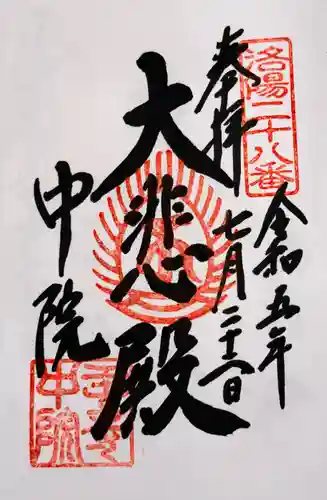 洛陽二十八番
奉拝
令和五年
七月二十二日
大悲殿
中院
壬生
中院